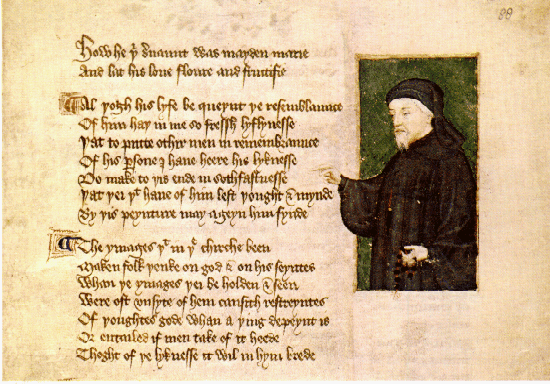 88
How he þͥ ẜuaunt was mayden marie
And lat his loue floure and fructifie
Al þogh his lyfe be queynt þe resemblaunce
Of him haþ in me so fressh lyflynesse
Þat to putte othir men in remembraunce
Of his ꝑsone I haue heere his lyknesse
Do make to þis ende in sothfastnesse
Þat þei þᵗ haue of him left þought & mynde
By þis peynture may ageyn him fynde
The ymages þᵗ in þᵉ chirche been
Maken folk þenke on god & on his seyntes
Whan þe ymages þei be holden & seen
Were oft vnsyte of hem causith restreyntes
Of þoughtes gode whan a þing depeynt is
Or entailed if men take of it heede
Thoght of þe lyknesse it wil in hym brede